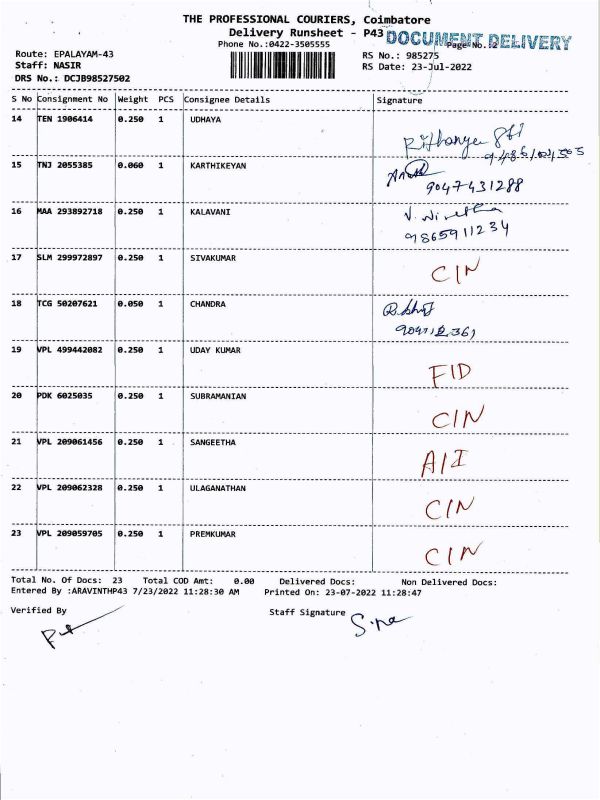 THE PROFESSIONAL COURIERS, Coimbatore
Delivery Runsheet - P43 DOCUMENT DELIVERY
Phone No.:0422-3505555 Page No.:2
Route: EPALAYAM-43 RS No.: 985275
Staff: NASIR RS Date: 23-Jul-2022
DRS No.: DCJB98527502
S No Consignment No Weight PCS Consignee Details Signature
14 TEN 1906414 0.250 1 UDHAYA
15 TNJ 2055385 0.060 1 KARTHIKEYAN
9047431288
16 MAA 293892718 0.250 1 KALAVANI
9865911234
17 SLM 299972897 0.250 1 SIVAKUMAR
CIN
18 TCG 50207621 0.050 1 CHANDRA
19 VPL 499442082 0.250 1 UDAY KUMAR
FID
20 PDK 6025035 0.250 1 SUBRAMANIAN
CIN
21 VPL 209061456 0.250 1 SANGEETHA
A/I
22 VPL 209062328 0.250 1 ULAGANATHAN
CIN
23 VPL 209059705 0.250 1 PREMKUMAR
CIN
Total No. Of Docs: 23 Total COD Amt: 0.00 Delivered Docs: Non Delivered Docs:
Entered By :ARAVINTHP43 7/23/2022 11:28:30 AM Printed On: 23-07-2022 11:28:47
Verified By Staff Signature